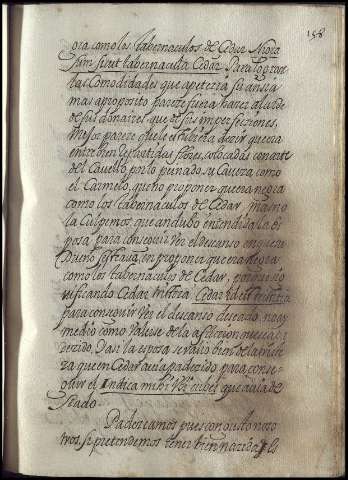 158
ora como los tabernaculos de Cedar Nigra
sum sicut tabernacula Cedar. Para lograr
las Comodidades que apetecia su ansia
mas aproposito parece fuera hacer alarde
de sus donaires que de sus imperfecciones.
Mejor parece que le estubiera decir que era
entre bien flores, colocadas con arte
del Cavello, pr lo peinado, su Caveza como
el Carmelo, que no proponer que era negra
como los tabernaculos de Cedar, mas no
la Culpemos, que andubo entendida la es
posa, para conseguir Ver el descanso en que su
Dueño sesteava, en proponer que era negra
como los tabernaculos de Cedar, porque sig
nificando Cedar tristeza Cedar id est tristitia
para conseguir Ver el descanso deseado, no ay
medio como Valerse de la afliccion que se a pa
decido, Y asi la esposa se valio bien de la triste
za que en Cedar avia padecido, para conse-
guir el Indica mihi Vbi cubes que avia de
seado.
Padezcamos pues con gusto noso
tros, si pretendemos tener bien nacida